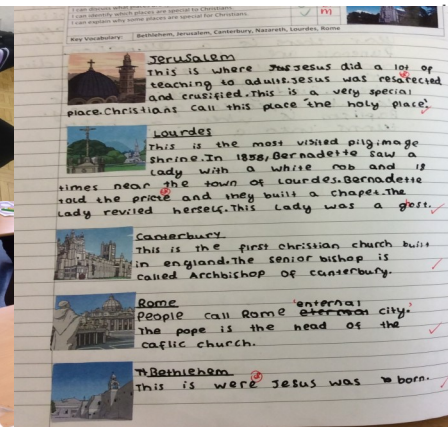 I can identify which places are special to Christians.
I can explain why some places are special for Christians.
Key Vocabulary: Bethlehem, Jerusalem, Canterbury, Nazareth, Lourdes, Rome
Jerusalem
This is where Jesus did a lot of
teaching to adults. Jesus was resarected
and crusified. This is a very special
place. Christians call this place 'the holy place'.
Lourdes
This is the most visited pilgimage
shrine. In 1858, Bernadette saw a
Lady with a white rob and 18
times near the town of Lourdes. Bernadette
told the pricte and they built a chapet. The
Lady reviled herself. This Lady was a gost.
Canterbury
This is the first christian church built
in england. The senior bishop is
called Archbishop of canterbury.
Rome
People call Rome 'enternal city.'
The pope is the head of the
caflic church.
Bethlehem
This is were Jesus was born.